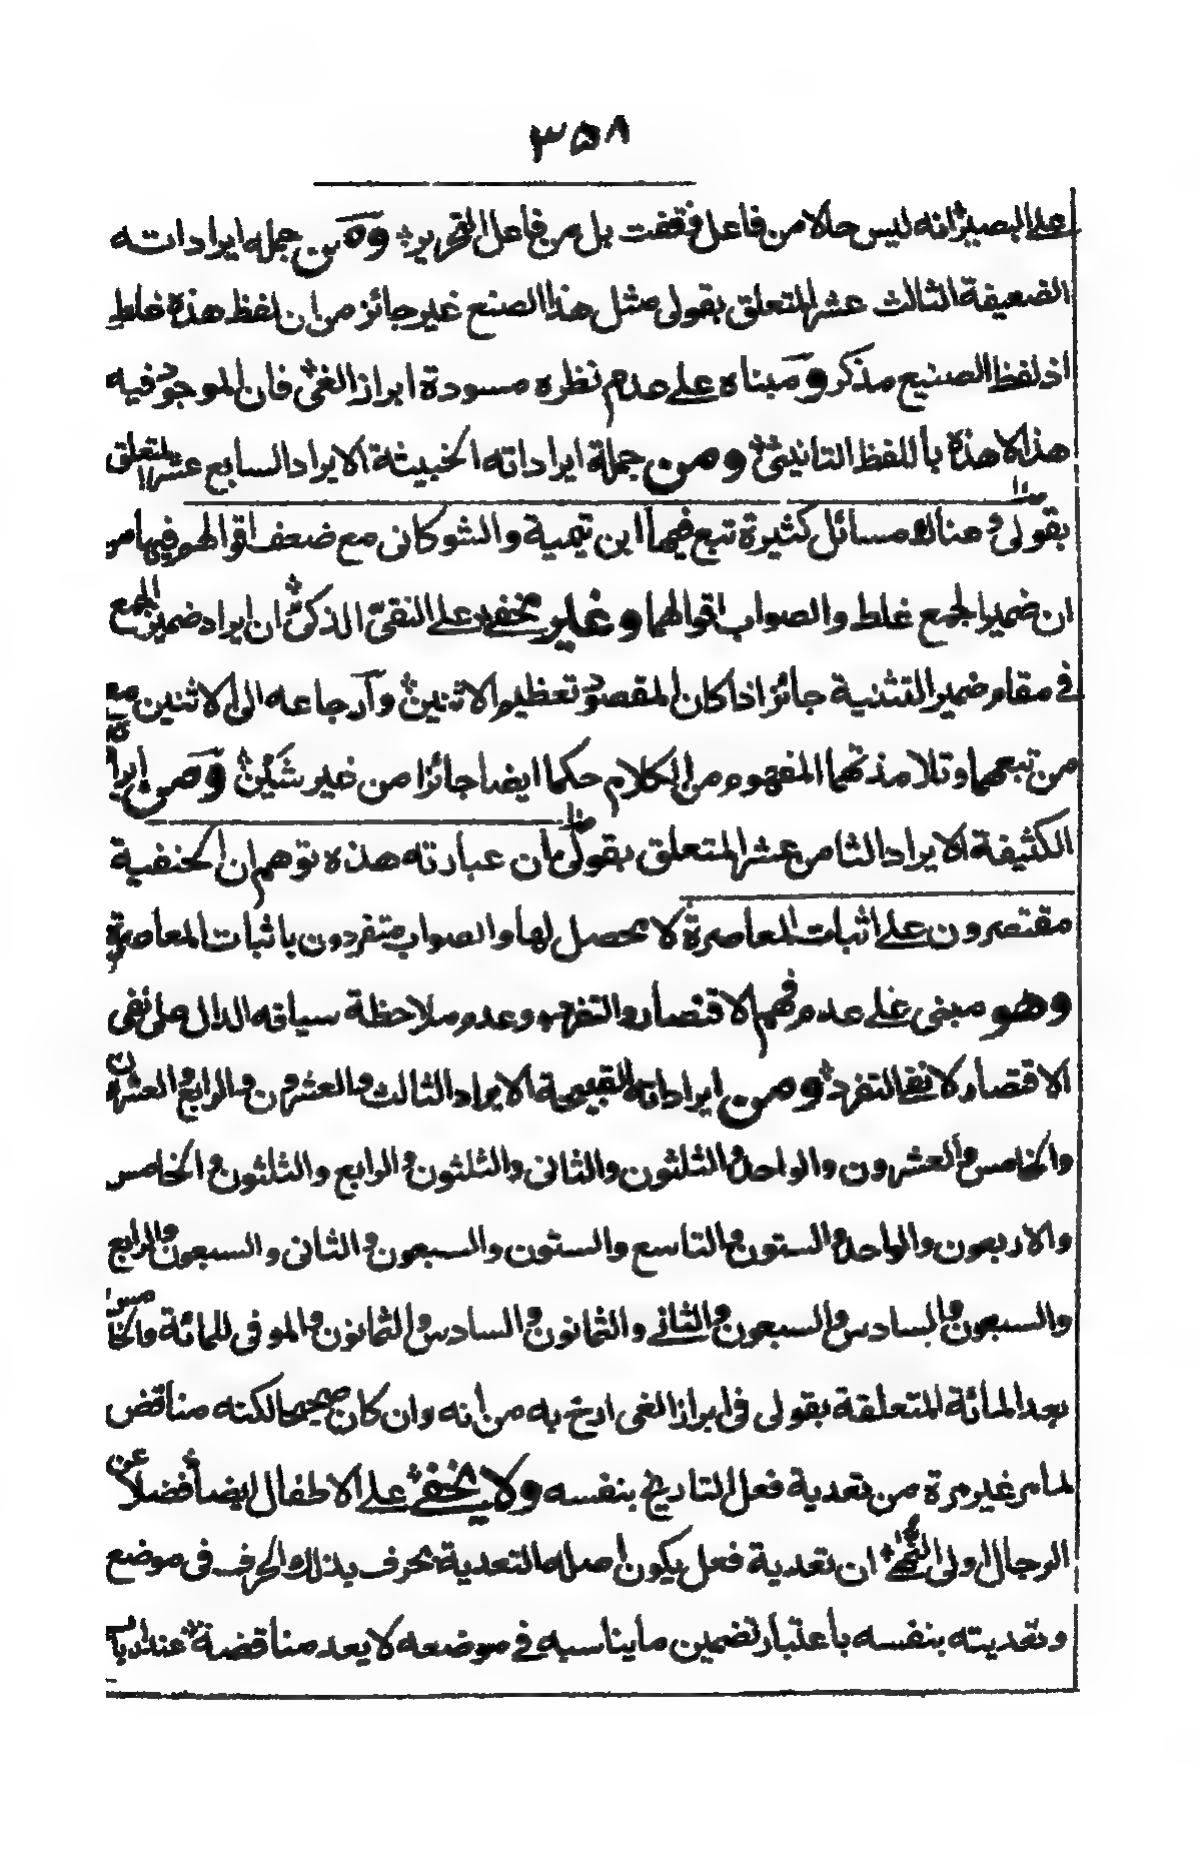 ٣٥٨
على البصير انه ليس حالا من فاعل فقفت بل من فاعل التحرير ومن جملة ايراداته
الضعيفة الثالث عشر المتعلق بقولى مثل هذا الصنع غير جائز من ان لفظ هذة غلط
اذ لفظ الصنيع مذكر ومبناه على عدم نظره مسودة ابراز الغى فان الموجود فيه
هذا لا هذة باللفظ التانيثى ومن جملة ايراداته الخبيثة الايراد السابع عشر المتعلق
بقولى وهناك مسائل كثيرة تبع فيها ابن تيمية والشوكانى مع ضعف اقوالهم فيها من
ان ضمير الجمع غلط والصواب اقوالهما وغير مخفى على النقى الذكى ان ايراد ضمير الجمع
فى مقام ضمير التثنية جائز اذا كان المقصود تعظيم الاثنين وآرجاعه الى الاثنين مع
من تبعهما وتلامذتهما المفهوم من الكلام حكما ايضا جائزا من غير شين ومن ايراداته
الكثيفة الايراد الثامن عشر المتعلق بقولى ان عبارته هذه توهم ان الحنفية
مقتصرون على اثبات المعاصرة لا محصل لها والصواب متفردون باثبات المعاصرة
وهو مبنى على عدم فهم الاقتصار والتفهم وعدم ملاحظة سياقه الدال على نفى
الاقتصار لا نفى التفرد ومن ايراداته القبيحة الايراد الثالث والعشرون والرابع والعشرون
والخامس والعشرون والواحد والثلثون والثانى والثلثون والرابع والثلثون والخامس
والاربعون والواحد والستون والتاسع والستون والسبعون والثانى والسبعون والرابع
والسبعون والسادس والسبعون والثانى والثمانون والسادس والثمانون والموفى للمائة والخامس
بعد المائة المتعلقة بقولى فى ابراز الغى ارخ به من انه وان كان صحيحا لكنه مناقض
لما مر غير مرة من تعدية فعل التاريخ بنفسه ولا يخفى على الاطفال ايضا فضلا عن
الرجال اولى النهى ان تعدية فعل يكون اصله التعدية بحرف بذلك الحرف فى موضع
وتعديته بنفسه باعتبار تضمين ما يناسبه فى موضعه لا يعد مناقضة عند ارباب